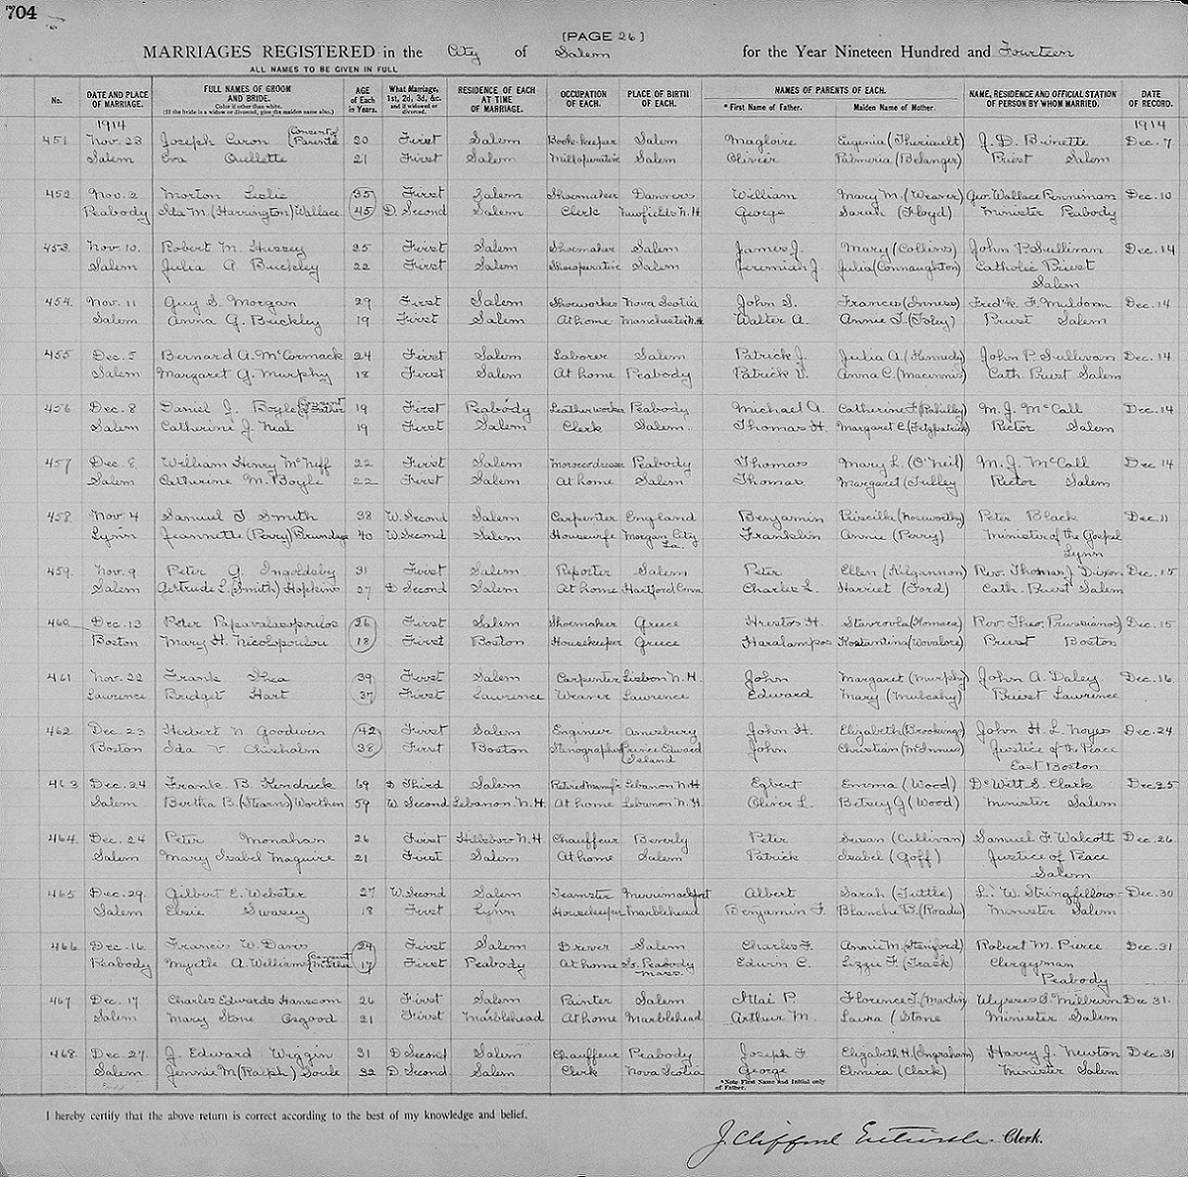 704
[PAGE 26]
MARRIAGES REGISTERED in the City of Salem for the Year Nineteen Hundred and Fourteen
ALL NAMES TO BE GIVEN IN FULL
No. DATE AND PLACE OF MARRIAGE. FULL NAMES OF GROOM AND BRIDE. Color if other than white. (If the bride is a widow or divorced, give the maiden name also.) AGE of Each in Years. What Marriage, 1st, 2d, 3d, &c. and if widowed or divorced. RESIDENCE OF EACH AT TIME OF MARRIAGE. OCCUPATION OF EACH. PLACE OF BIRTH OF EACH. NAMES OF PARENTS OF EACH. * First Name of Father. Maiden Name of Mother. NAME, RESIDENCE AND OFFICIAL STATION OF PERSON BY WHOM MARRIED. DATE OF RECORD.
1914 1914
451 Nov. 23 Joseph Caron (Consent of Parents 20 First Salem Book-keeper Salem Magloire Eugenia (Theriault) J. D. Brinette Dec. 7
Salem Eva Ouellette 21 First Salem Milloperative Salem Olivier Palmeria (Belanger) Priest Salem
452 Nov. 2 Morton Leslie 35 First Salem Shoemaker Danvers William Mary M. (Weaver) Geo. Wallace Penniman Dec. 10
Peabody Ida M. (Harrington) Wallace 45 D Second Salem Clerk Newfields N.H. George Sarah (Floyd) Minister Peabody
453 Nov. 10. Robert M. Hussey 25 First Salem Shoemaker Salem James J. Mary (Collins) John P. Sullivan Dec. 14
Salem Julia A Buckley 22 First Salem Shoeoperative Salem Jeremiah J. Julia (Connaughton) Catholic Priest
Salem
454. Nov. 11 Guy S. Morgan 29 First Salem Shoeworker Nova Scotia John S. Frances (Inness) Fred'k F. Muldoon Dec. 14
Salem Anna G. Buckley 19 First Salem At home Manchester N.H. Walter A. Annie T. (Foley) Priest Salem
455 Dec. 5 Bernard A. McCormack 24 First Salem Laborer Salem Patrick J. Julia A. (Kennedy) John P. Sullivan Dec. 14.
Salem Margaret G. Murphy 18 First Salem At home Peabody Patrick V. Anna C. (Macinnis) Cath. Priest Salem
456 Dec. 8 Daniel J. Boyle (Consent of Father 19 First Peabody Leatherworker Peabody Michael A. Catherine F. (Rahilly) M. J. McCall Dec. 14
Salem Catherine J. Neal 19 First Salem Clerk Salem. Thomas H. Margaret C. (Fitzpatrick) Rector Salem
457 Dec 8. William Henry McNiff 22 First Salem Moroccodresser Peabody Thomas Mary L. (O'Neil) M. J. McCall Dec 14
Salem Catherine M. Boyle 22 First Salem At home Salem Thomas Margaret (Tulley Rector Salem
458 Nov. 4 Samuel T Smith 38 W. Second Salem Carpenter England Benjamin Priscilla (Noseworthy) Peter Black Dec. 11
Lynn Jeannette (Perry) Brundage 40 W. Second Salem Housewife Morgan City La. Franklin Annie (Parry) Minister of the Gospel
Lynn
459. Nov. 9. Peter G. Ingoldsby 31 First Salem Reporter Salem Peter Ellen (Kilgannon) Rev. Thomas J Dixon Dec. 15
Salem Gertrude L. (Smith) Hopkins 27 D Second Salem At home Hartford Conn Charles L. Harriet (Ford) Cath. Priest Salem
460 Dec. 13 Peter Papavalasopoulos 26 First Salem Shoemaker Greece Hrestos H. Stavroula Rev. Theo. Dec. 15
Boston Mary H. Nicolopoulou 18 First Boston Housekeeper Greece Haralampos Kostantina Priest Boston
461 Nov. 22 Frank Shea 39 First Salem Carpenter Lisbon N.H. John Margaret (Murphy) John A. Daley Dec. 16.
Lawrence Bridget Hart 37 First Lawrence Weaver Lawrence Edward Mary (Mulcahy) Priest Lawrence
462 Dec. 23 Herbert N Goodwin 42 First Salem Engineer Amesbury John H. Elizabeth (Brookings) John H. L. Noyes Dec. 24
Boston Ida V Chisholm 38 First Boston Stenographer Prince Edward Island John Christian (McInnus) Justice of the Peace
East Boston
463 Dec. 24 Frank B. Kendrick 69 D Third Salem Retired Manuf'r Lebanon N.H. Egbert Emma (Wood) De Witt S. Clark Dec 25
Salem Bertha B. (Stearns) Warthen 59 W Second Lebanon N.H. At home Lebanon N.H. Oliver L. Betsey G (Wood) Minister Salem
464. Dec. 24 Peter Monahan 26 First Hillsboro N.H. Chauffeur Beverly Peter Susan (Cullivan) Samuel F. Walcott Dec. 26.
Salem Mary Isabel Maguire 21 First Salem At home Salem Patrick Isabel (Goff) Justice of Peace
Salem
465 Dec. 29. Gilbert E. Webster 27 W. Second Salem Teamster Merrimackport Albert Sarah (Tuttle) L. W. Stringfellow Dec. 30
Salem Elsie Swasey 18 First Lynn Housekeeper Marblehead Benjamin F. Blanche B. (Roads) Minister Salem
466. Dec. 16. Francis W. Davis 24 First Salem Driver Salem Charles F. Annie M. (Haniford) Robert M. Pierce Dec. 31
Peabody Myrtle A. Williams (Consent 17 First Peabody At home So. Peabody Mass. Edwin C. Lizzie F. (Trask) Clergyman
Peabody
467 Dec. 17 Charles Edwards Hanscom 26 First Salem Painter Salem Ittai P. Florence T. (Martin) Ulysses S. Milburn Dec 31.
Salem Mary Stone Osgood 21 First Marblehead At home Marblehead Arthur M. Laura (Stone Minister Salem
468. Dec. 27. J. Edward Wiggin 31 D Second Salem Chauffeur Peabody Joseph F. Elizabeth H. (Ingraham) Harvey J. Newton Dec. 31
Salem Jennie M (Ralph) Soule 32 D. Second. Salem Clerk Nova Scotia George Elmira (Clark) Minister Salem
* Note First Name and Initial only of Father.
I hereby certify that the above return is correct according to the best of my knowledge and belief.
J. Clifford Entwisle Clerk.